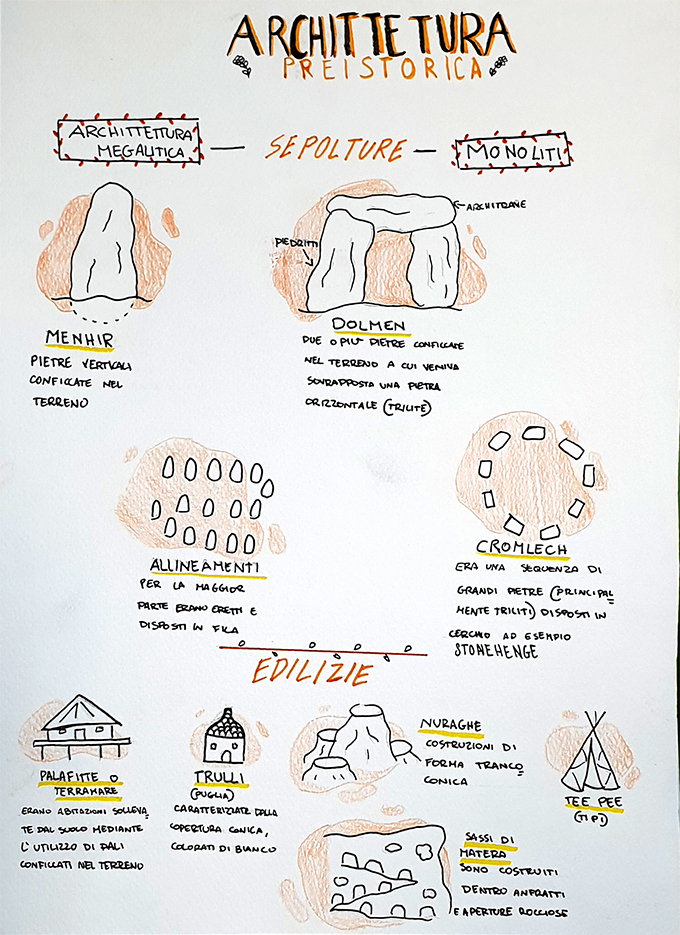 ARCHITTETURA
PREISTORICA
ARCHITETTURA
MEGALITICA
SEPOLTURE
MONOLITI
ARCHITRAVE
PIEDRITTI
MENHIR
PIETRE VERTICALI
CONFICCATE NEL
TERRENO
DOLMEN
DUE O PIU' PIETRE CONFICCATE
NEL TERRENO A CUI VENIVA
SOVRAPPOSTA UNA PIETRA
ORIZZONTALE (TRILITE)
ALLINEAMENTI
PER LA MAGGIOR
PARTE ERANO ERETTI E
DISPOSTI IN FILA
CROMLECH
ERA UNA SEQUENZA DI
GRANDI PIETRE (PRINCIPAL
MENTE TRILITI) DISPOSTI IN
CERCHIO AD ESEMPIO
STONEHENGE
EDILIZIE
PALAFITTE O
TERRAMARE
ERANO ABITAZIONI SOLLEVA
TE DAL SUOLO MEDIANTE
L'UTILIZZO DI PALI
CONFICCATI NEL TERRENO
TRULLI
(PUGLIA)
CARATTERIZZATE DALLA
COPERTURA CONICA,
COLORATI DI BIANCO
NURAGHE
COSTRUZIONI DI
FORMA TRANCO
CONICA
TEE PEE
(TIPI)
SASSI DI
MATERA
SONO COSTRUITI
DENTRO ANFRATTI
E APERTURE ROCCIOSE